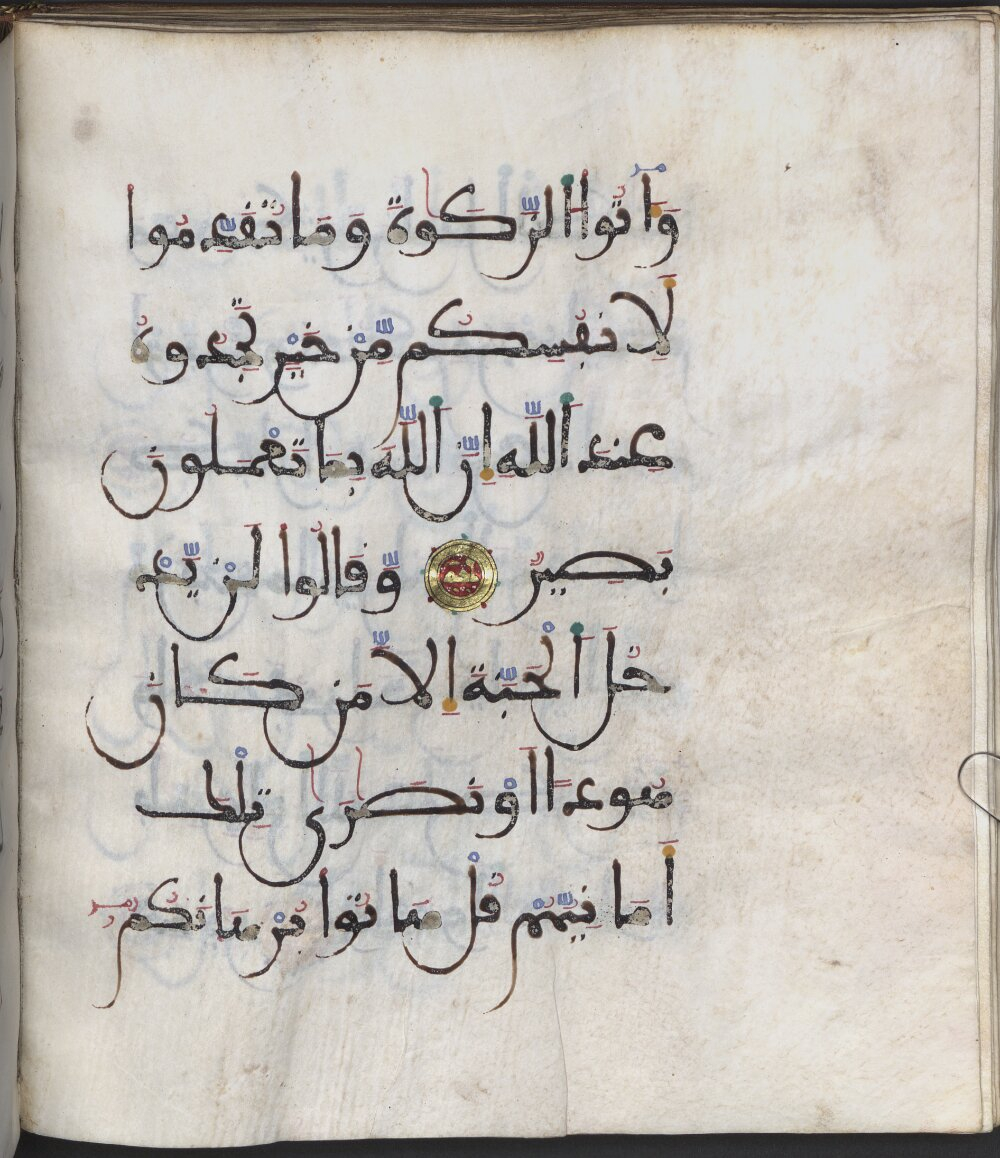 وَءَاتُوا۟ الزَّكَوٰةَ وَمَا تُقَدِّمُوا
لِأَنفُسِكُم مِّنْ خَيْرٍ تَجِدُوهُ
عِندَ اللَّهِ إِنَّ اللَّهَ بِمَا تَعْمَلُونَ
بَصِيرٌ وَقَالُوا لَنْ يَّدْ
خُلَ الْجَنَّةَ إِلَّا مَن كَانَ
هُودًا أَوْ نَصَٰرَىٰ تِلْكَ
أَمَانِيُّهُمْ قُلْ هَاتُوا بُرْهَانَكُمْ